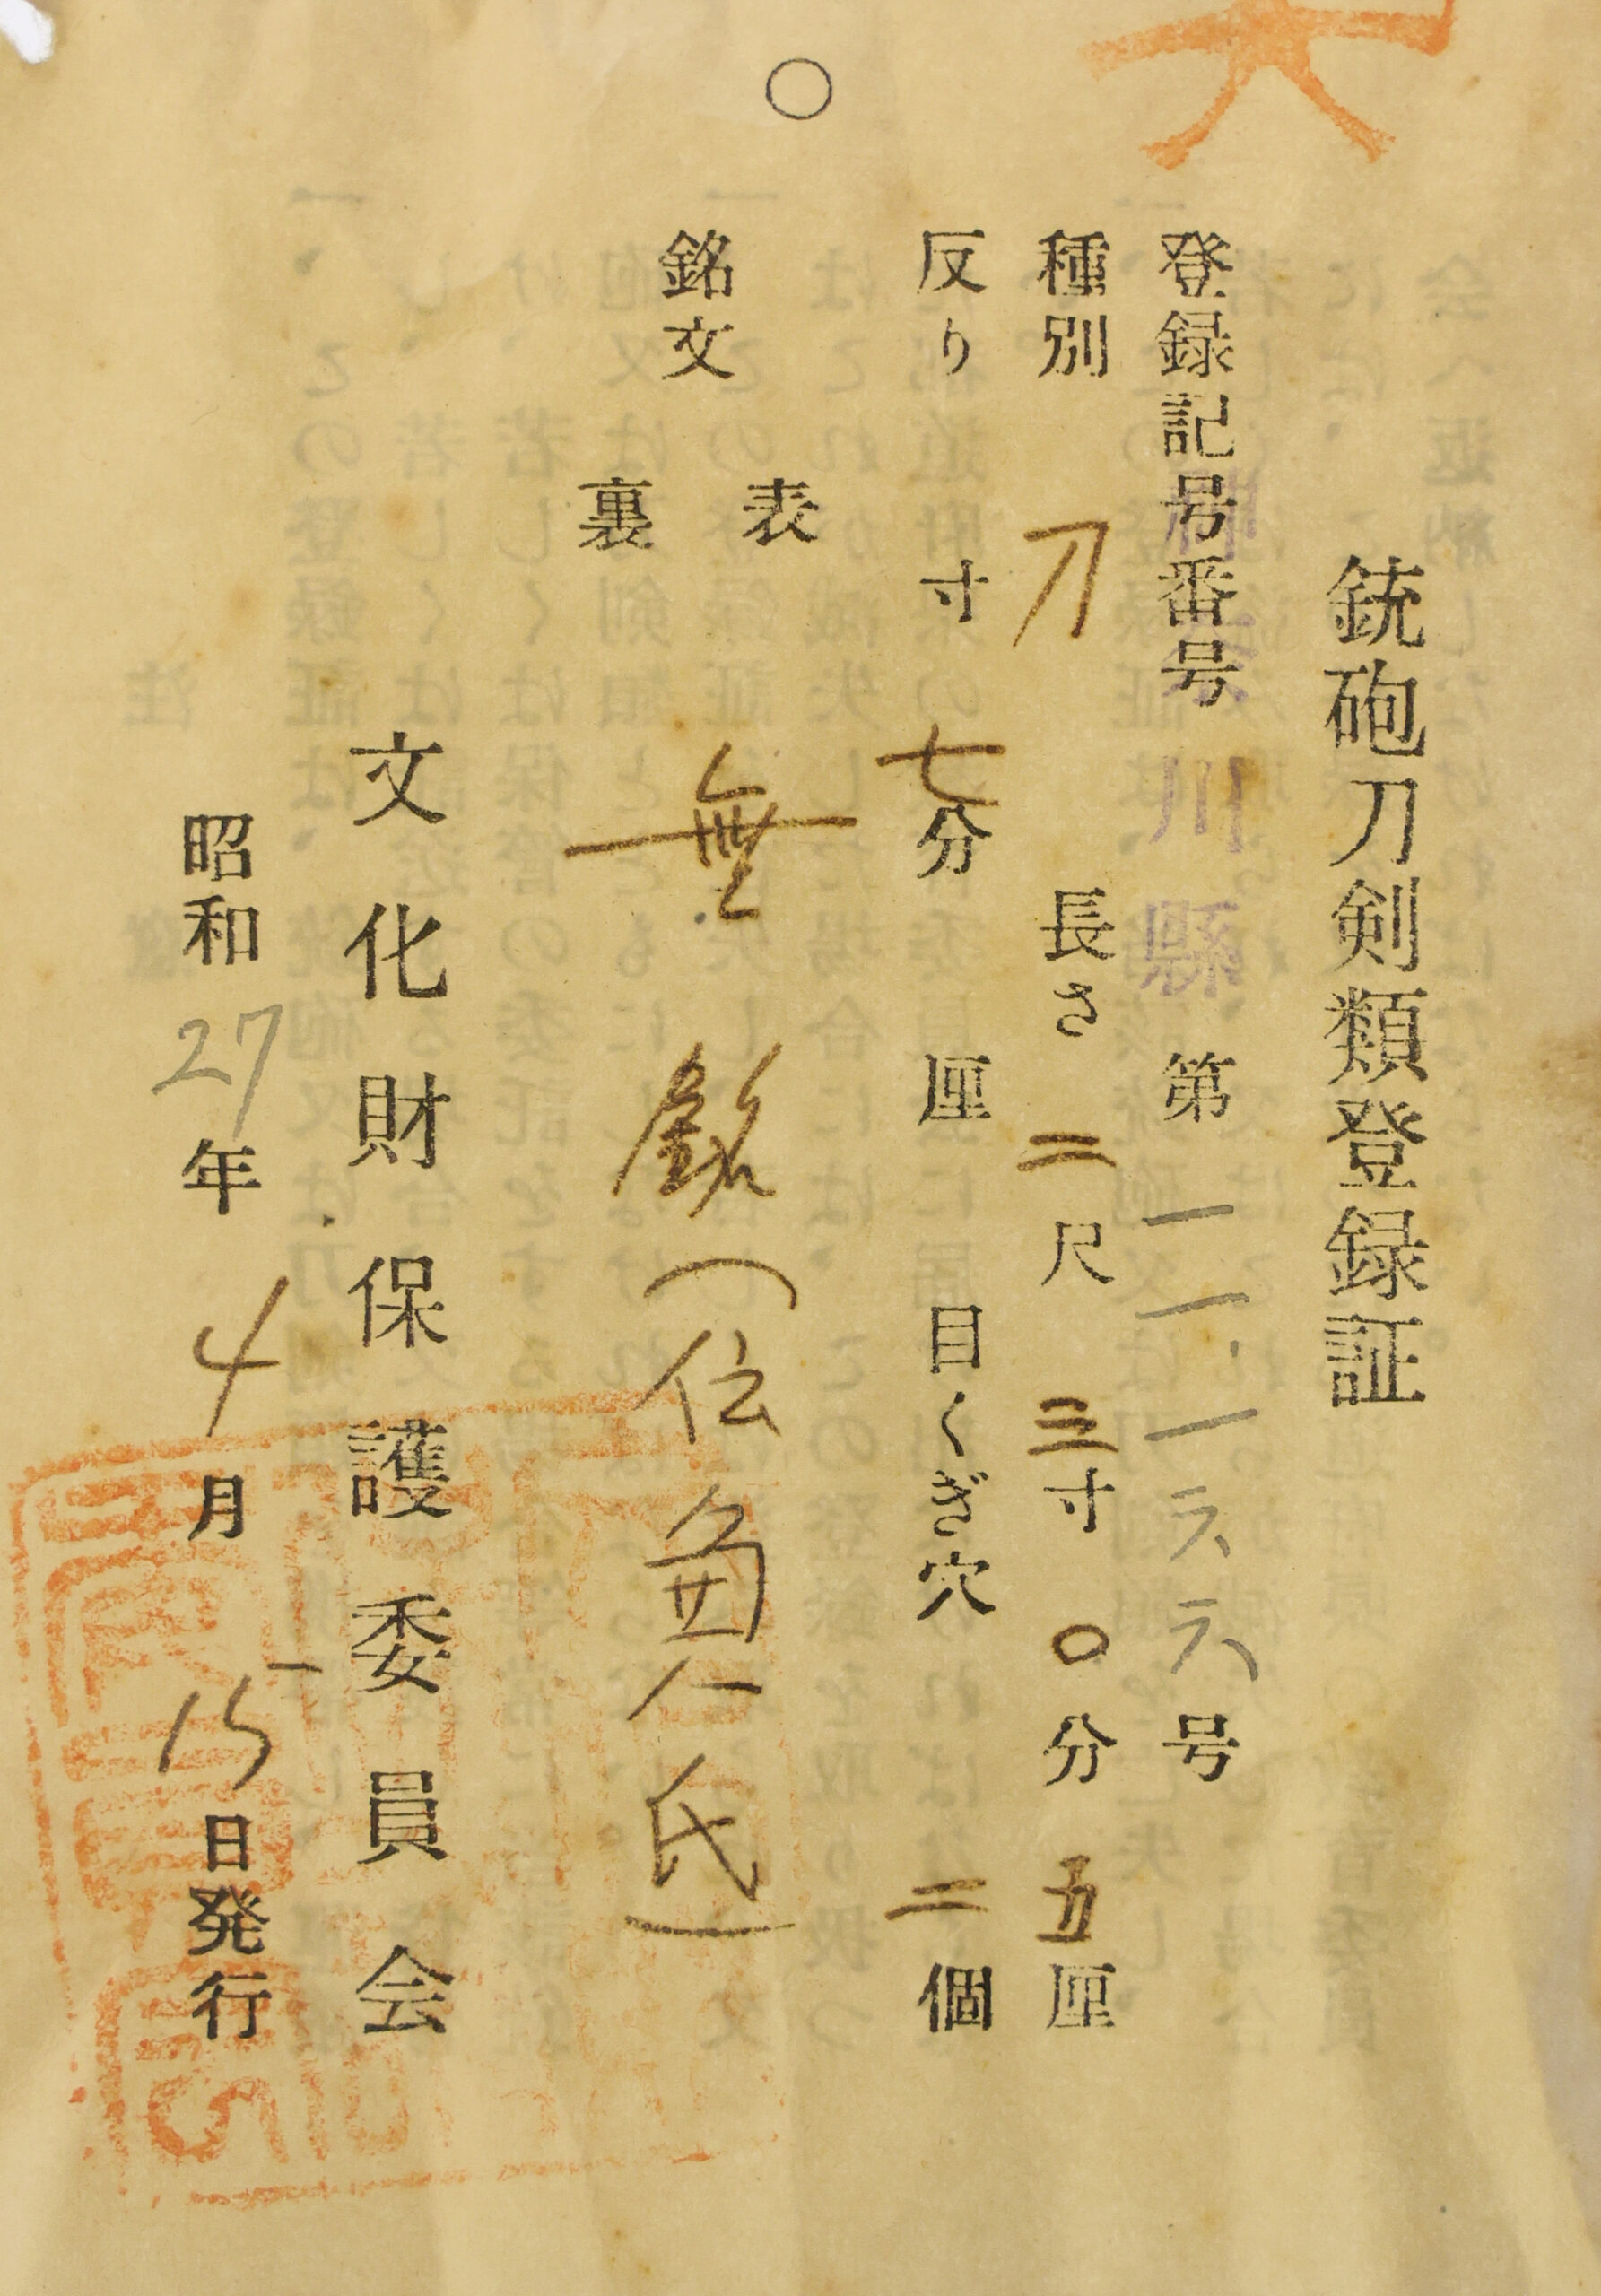 大
銃砲刀剣類登録証
登録記号番号 神奈川縣 第一一一六六号
種別 刀 長さ 二尺 三寸 〇分 五厘
反り 寸 七分 厘 目くぎ穴 二個
銘文
表
裏
無銘(伝兼氏)
文化財保護委員会
昭和27年4月15日発行